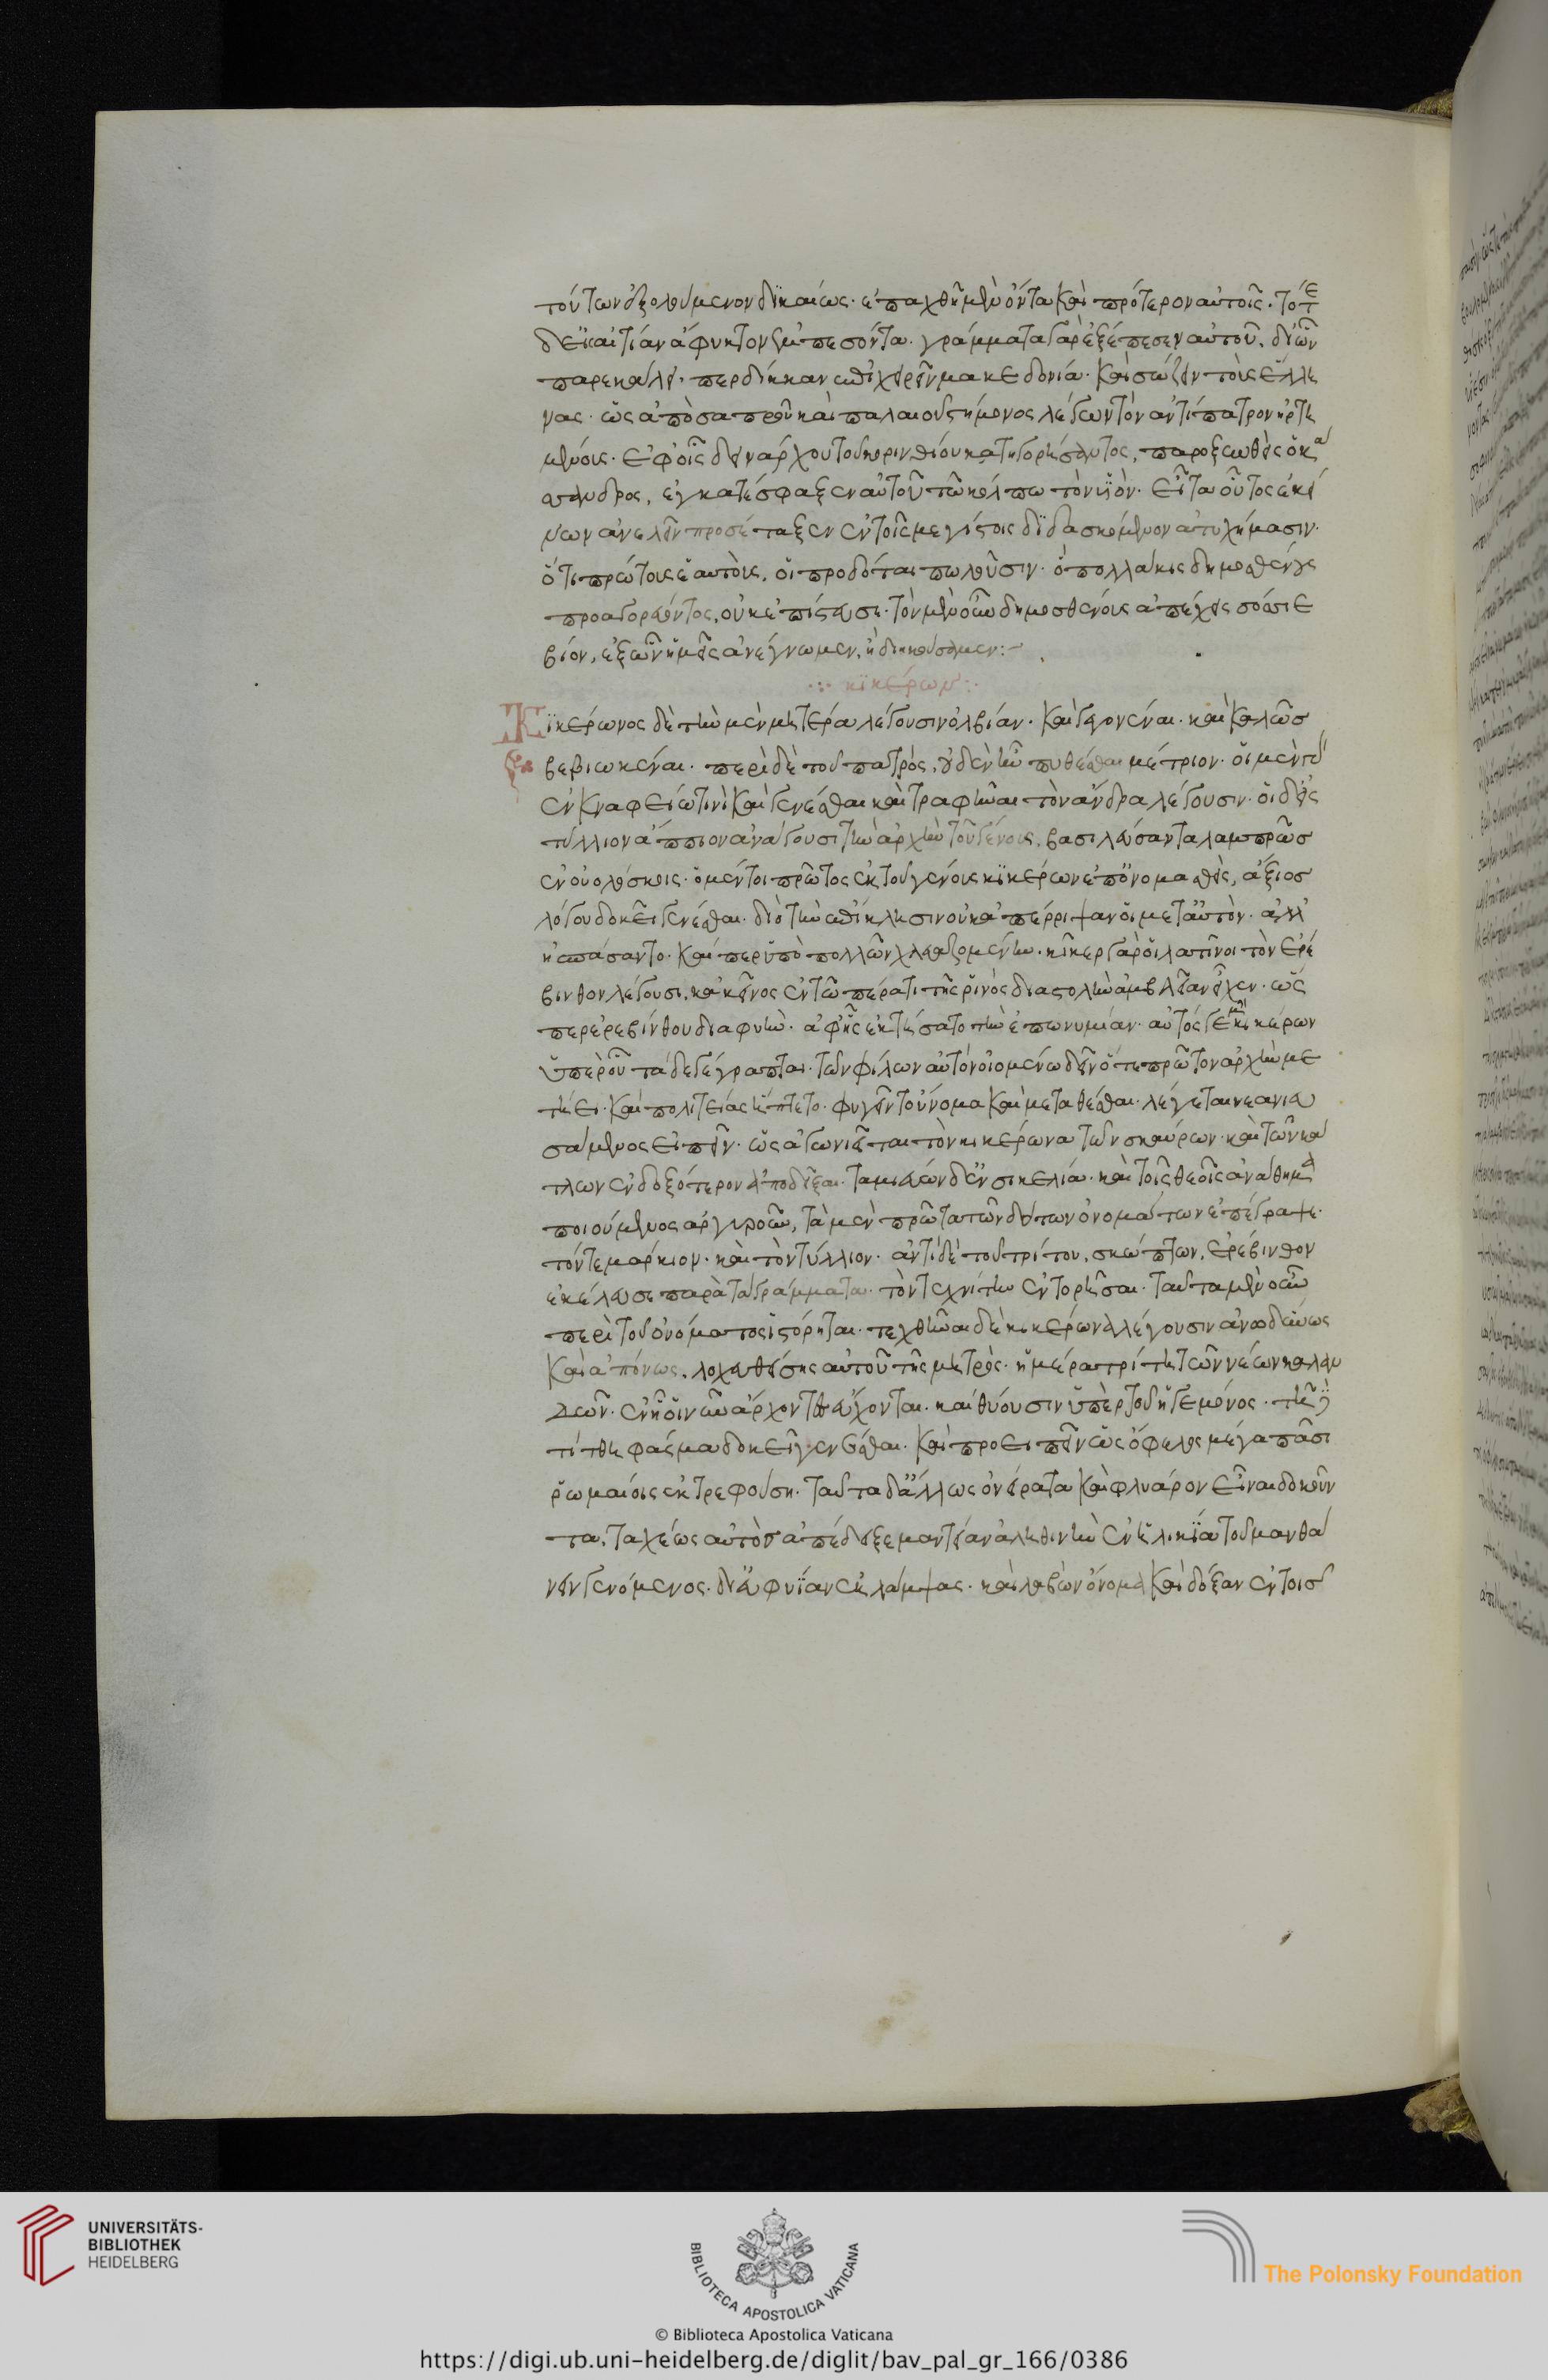 τούτων ἐξολούμενον δικαίως· ἐπαχθῆ μὲν ὄντα καὶ πρότερον αὐτοῖς· τότε
δὲ εἰς αἰτίαν ἄφυκτον ἐμπεσόντα· γράμματα γὰρ ἐξέπεσεν αὐτοῦ, δι' ὧν
παρεκάλει· περδίκκαν ἐπιχειρεῖν μακεδονία· καὶ σώζειν τοὺς ἕλλη
νας· ὡς ἀπὸ σαπροῦ καὶ παλαιοῦ στήμονος λέγων τὸν ἀντίπατρον ἠρτη
μένους· ἐφ' οἷς δεινάρχου τοῦ κορινθίου κατηγορήσαντος, παροξυνθεὶς ὁ κά
σανδρος, ἐγκατέσφαξεν αὐτοῦ τῶ κόλπω τὸν υἱὸν· εἶτα οὕτως ἐκεῖ
νον ἀνελεῖν προσέταξεν ἐν τοῖς μεγίστοις διδασκόμενον ἀτυχήμασιν·
ὅτι πρώτους ἑαυτοὺς, οἱ προδόται πωλοῦσιν· ὃ πολλάκις δημοσθένης
προαγορεύοντος, οὐκ ἐπίστευσε· τὸν μὲν οὖν δημοσθένους ἀπέχεις σόσσιε
βίον, ἐξ ὧν ἡμεῖς ἀνέγνωμεν, ἢ διηκούσαμεν:-
κικέρων
Κικέρωνος δὲ τὴν μὲν μητέρα λέγουσιν ὀλβίαν· καὶ γεγονέναι· καὶ καλῶσ
βεβιωκέναι· περὶ δὲ τοῦ πατρὸς, οὐδὲν ἦν πυθέσθαι μέτριον· οἱ μὲν γὰρ
ἐν κναφείω τινὶ καὶ γενέσθαι καὶ τραφῆναι τὸν ἄνδρα λέγουσιν· οἱ δ' εἰς
τύλλιον ἄππιον ἀνάγουσι τὴν ἀρχὴν τοῦ γένους, βασιλεύσαντα λαμπρῶσ
ἐν οὐολούσκοις· ὁ μέντοι πρῶτος ἐκ τοῦ γένους κικέρων ἐπονομασθεὶς, ἄξιοσ
λόγου δοκεῖ γενέσθαι· διὸ τὴν ἐπίκλησιν οὐκ ἀπέρριψαν οἱ μετ' αὐτὸν· ἀλλ'
ἠσπάσαντο· καίπερ ὑπὸ πολλῶν χλευαζομένην· κίκερ γὰρ οἱ λατῖνοι τὸν ἐρέ
βινθον λέγουσι, κἀκεῖνος ἐν τῶ πέρατι τῆς ῥινὸς διαστολὴν ἀμβλεῖαν εἶχεν· ὥσ
περ ἐρεβίνθου διαφυὴν· ἀφ' ἧς ἐκτήσατο τὴν ἐπωνυμίαν· αὐτός γε μὴν κικέρων
ὑπὲρ οὗ τάδε γέγραπται· τῶν φίλων αὐτὸν οἰομένων δεῖν ὅτε πρῶτον ἀρχὴν με
τήει· καὶ πολιτείας ἥπτετο· φυγεῖν τοὔνομα καὶ μεταθέσθαι· λέγεται νεανιευ
σάμενος εἰπεῖν· ὡς ἀγωνιεῖται τὸν κικέρωνα τῶν σκαύρων· καὶ τῶν κά
τλων ἐνδοξότερον ἀποδεῖξαι· ταμιεύων δ' ἐν σικελία· καὶ τοῖς θεοῖς ἀνάθημα
ποιούμενος ἀργυροῦν, τὰ μὲν πρῶτα τῶν δύο τῶν ὀνομάτων ἐπέγραψε·
τόν τε μάρκιον· καὶ τὸν τύλλιον· ἀντὶ δὲ τοῦ τρίτου, σκώπτων, ἐρέβινθον
ἐκέλευσε παρὰ τὰ γράμματα· τὸν τεχνίτην ἐντορεῦσαι· ταῦτα μὲν οὖν
περὶ τοῦ ὀνόματος ἱστόρηται· τεχθῆναι δὲ κικέρωνα λέγουσιν ἀνωδύνως
καὶ ἀπόνως, λοχευθείσης αὐτοῦ τῆς μητρὸς· ἡμέρα τρίτη τῶν νέων καλαν
δῶν· ἐν ἧ νῦν ἄρχοντες εὔχονται· καὶ θύουσιν ὑπὲρ τοῦ ἡγεμόνος· τῆ δὲ
τίτθη φάσμα δοκεῖ γενέσθαι· καὶ προειπεῖν ὡς ὄφελος μέγα πᾶσι
ῥωμαίοις ἐκτρεφούση· ταῦτα δ' ἄλλως ὀνείρατα καὶ φλύαρον εἶναι δοκοῦν
τα, ταχέως αὐτὸς ἀπέδειξε μαντείαν ἀληθινὴν ἐν ἡλικία τοῦ μανθά
νειν γενόμενος· δι' εὐφυΐαν ἐκλάμψας· καὶ λαβὼν ὄνομα καὶ δόξαν ἐν τοῖσ
UNIVERSITÄTS-
BIBLIOTHEK
HEIDELBERG
BIBLIOTECA APOSTOLICA VATICANA
The Polonsky Foundation
© Biblioteca Apostolica Vaticana
https://digi.ub.uni-heidelberg.de/diglit/bav_pal_gr_166/0386